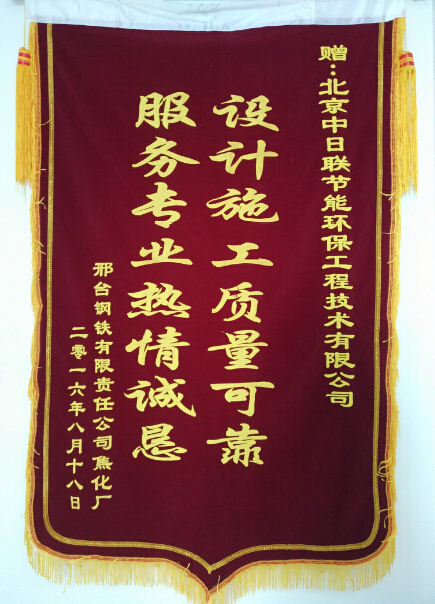 赠:北京中日联节能环保工程技术有限公司
设计施工质量可靠
服务专业热情诚恳
邢台钢铁有限责任公司焦化厂
二零一六年八月十八日